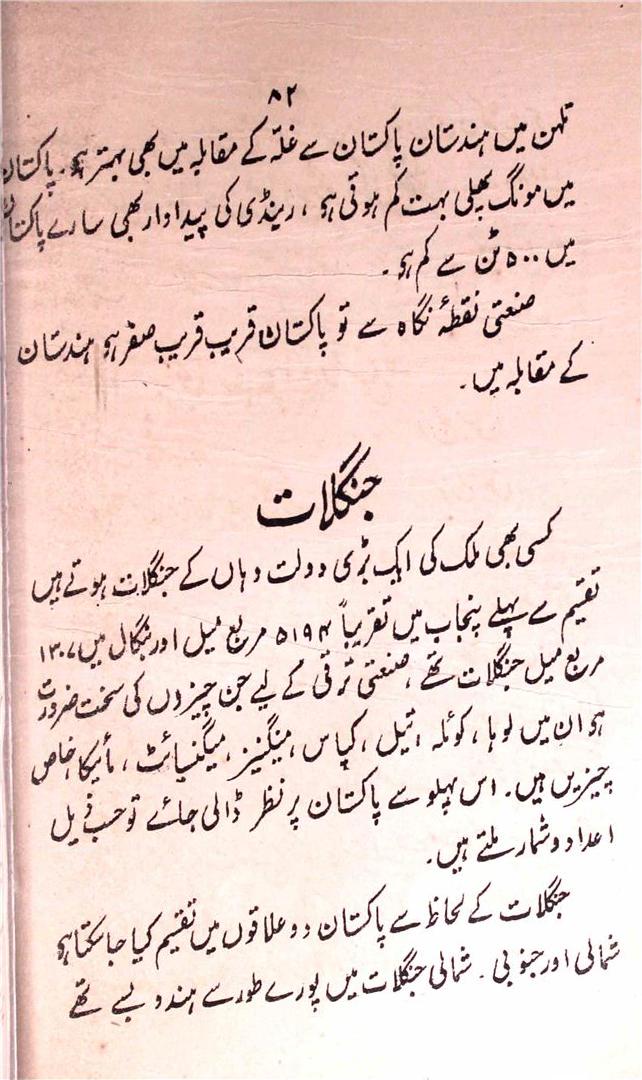 ۸۲
تلہن میں ہندستان پاکستان سے غلّہ کے مقابلہ میں بھی بہتر ہو۔ پاکستان
میں مونگ پھلی بہت کم ہوتی ہو، رینڈی کی پیداوار بھی سارے پاکستان
میں ۵۰۰ ٹن سے کم ہو۔
صنعتی نقطۂ نگاہ سے تو پاکستان قریب قریب صفر ہو ہندستان
کے مقابلہ میں۔
جنگلات
کسی بھی ملک کی ایک بڑی دولت وہاں کے جنگلات ہوتے ہیں
تقیم سے پہلے پنجاب میں تقریباً ۵۱۹۴ مربع میل اور بنگال میں ۱۳۰۷
مربع میل جنگلات تھے، صنعتی ترقی کے لیے جن چیزوں کی سخت ضرورت
ہو ان میں لوہا، کوئلہ، تیل، کپاس، مینگنیز، میگنیائٹ، مائیکا، خاص
چیزیں ہیں۔ اس پہلو سے پاکستان پر نظر ڈالی جائے تو حسب ذیل
اعداد و شمار ملتے ہیں۔
جنگلات کے لحاظ سے پاکستان دو علاقوں میں تقیم کیا جاسکتا ہو
شمالی اور جنوبی۔ شمالی جنگلات میں پورے طور سے ہندو بسے تھے